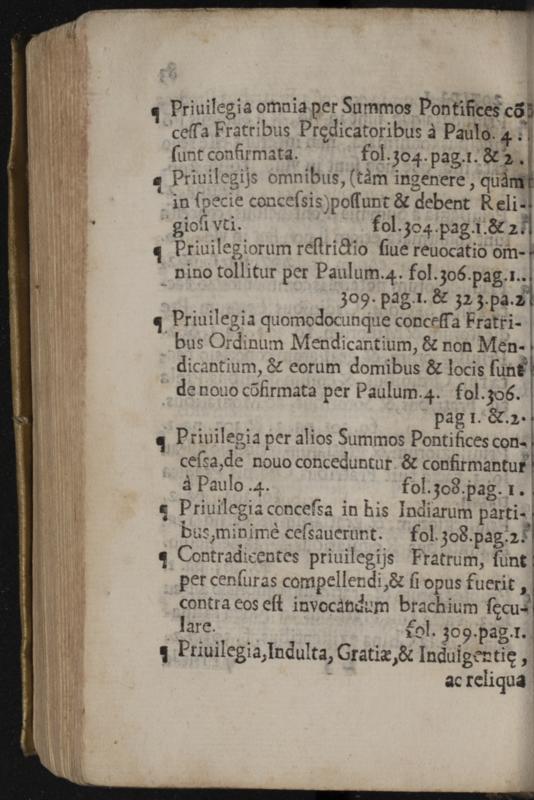 ¶ Priuilegia omnia per Summos Pontifices cõ
ceſſa Fratribus Prędicatoribus à Paulo. 4.
ſunt confirmata. fol.304.pag.1. & 2.
¶ Priuilegijs omnibus, (tàm ingenere, quàm
in ſpecie conceſsis)poſſunt & debent Reli-
gioſi vti. fol.304.pag.1.& 2.
¶ Priuilegiorum reſtrictio ſiue reuocatio om-
nino tollitur per Paulum.4. fol.306.pag.1.
309. pag.1. & 323.pa.2
¶ Priuilegia quomodocunque conceſſa Fratri-
bus Ordinum Mendicantium, & non Men-
dicantium, & eorum domibus & locis ſunt
de nouo cõfirmata per Paulum.4. fol.306.
pag 1. &.2.
¶ Priuilegia per alios Summos Pontifices con-
ceſsa,de nouo conceduntur & confirmantur
à Paulo .4. fol.308.pag. 1.
¶ Priuilegia conceſsa in his Indiarum parti-
bus,minimè ceſsauerunt. fol.308.pag.2.
¶ Contradicentes priuilegijs Fratrum, ſunt
per cenſuras compellendi,& ſi opus fuerit,
contra eos eſt invocandum brachium ſęcu-
lare. fol. 309.pag.1.
¶ Priuilegia,Indulta, Gratiæ,& Indulgentię,
ac reliqua